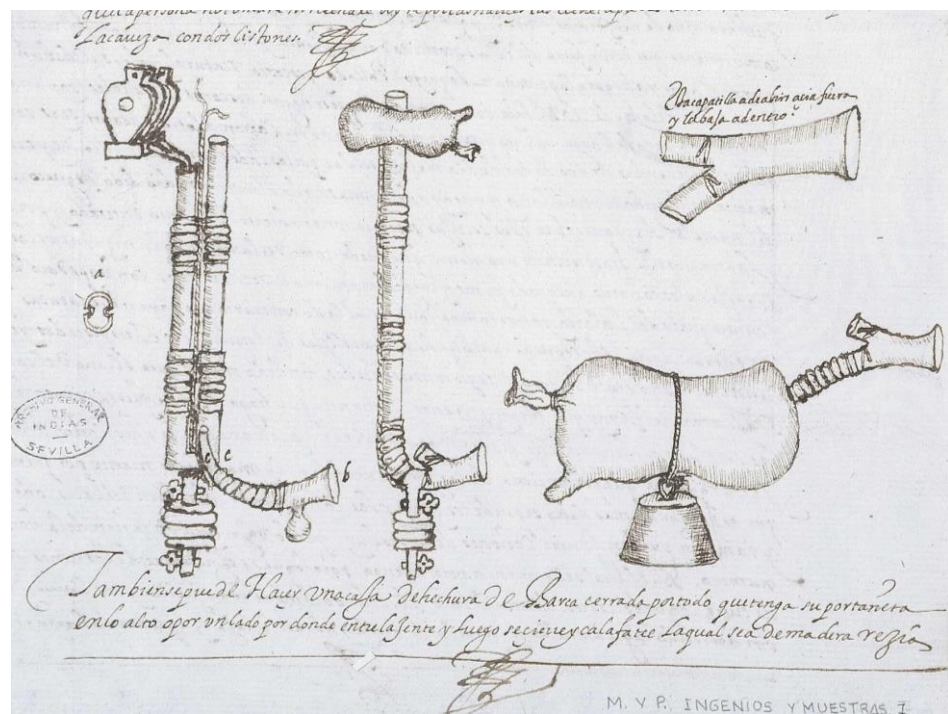 La caueza con dos listones.
Vna capatilla a de abrir acia fuera
y let baja adentro.
a
c
c
b
ARCHIVO GENERAL
DE
INDIAS
SEVILLA
Tambien se puede Hacer vna caJa de hechura de Barca cerrada por todo que tenga su portañeta
en lo alto o por vn lado por donde entre la Jente y Luego se cierre y calafatee Laqual sea de madera rezia
M. Y P. INGENIOS Y MUESTRAS I